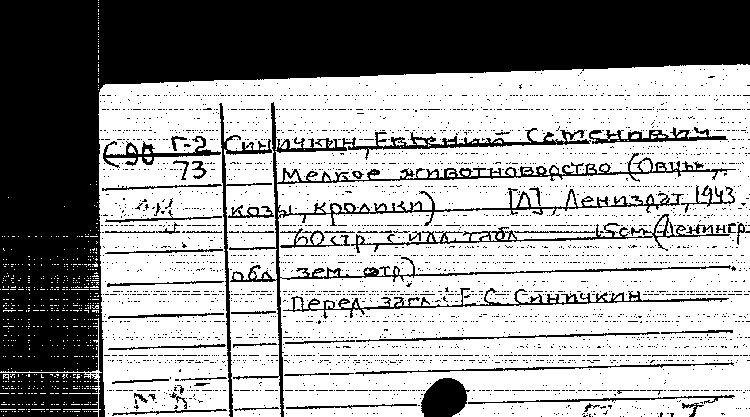 С90 Г-2 Синичкин, Евгений Семенович
73 Мелкое животноводство (Овцы,
козы, кролики) [Л], Лениздат, 1943.
60 стр, с илл. табл 15см (Ленингр
обл зем. отд)
Перед загл: Е С Синичкин